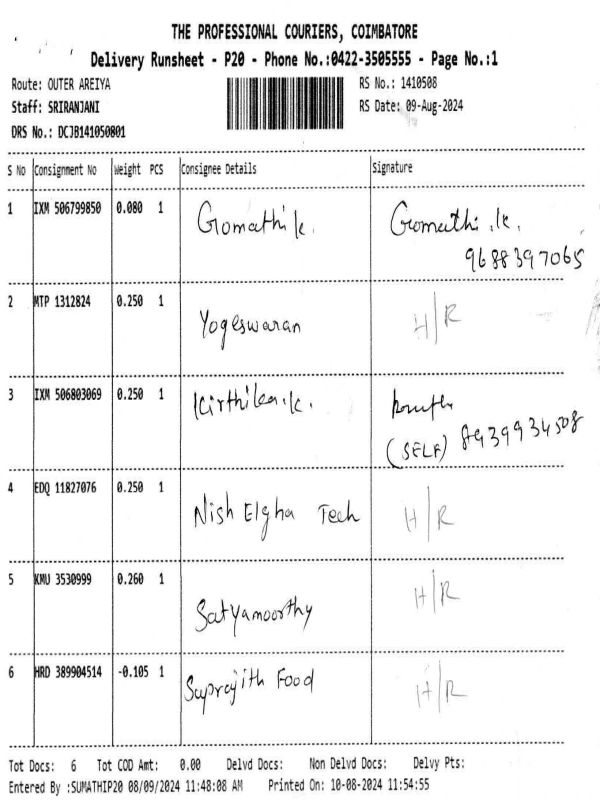 THE PROFESSIONAL COURIERS, COIMBATORE
Delivery Runsheet - P20 - Phone No.:0422-3505555 - Page No.:1
Route: OUTER AREIYA RS No.: 1410508
Staff: SRIRANJANI RS Date: 09-Aug-2024
DRS No.: DCJB141050801
S No Consignment No Weight PCS Consignee Details Signature
1 IXM 506799850 0.080 1 Gomathi k. Gomathi .k.
9688397065
2 MTP 1312824 0.250 1 Yogeswaran H/R
3 IXM 506803069 0.250 1 Kirthika.k.
(SELF) 8939934508
4 EDQ 11827076 0.250 1 Nish Elgha Tech H/R
5 KMU 3530999 0.260 1 Satyamoorthy H/R
6 HRD 389904514 -0.105 1 Suprajith Food H/R
Tot Docs: 6 Tot COD Amt: 0.00 Delvd Docs: Non Delvd Docs: Delvy Pts:
Entered By :SUMATHIP20 08/09/2024 11:48:08 AM Printed On: 10-08-2024 11:54:55